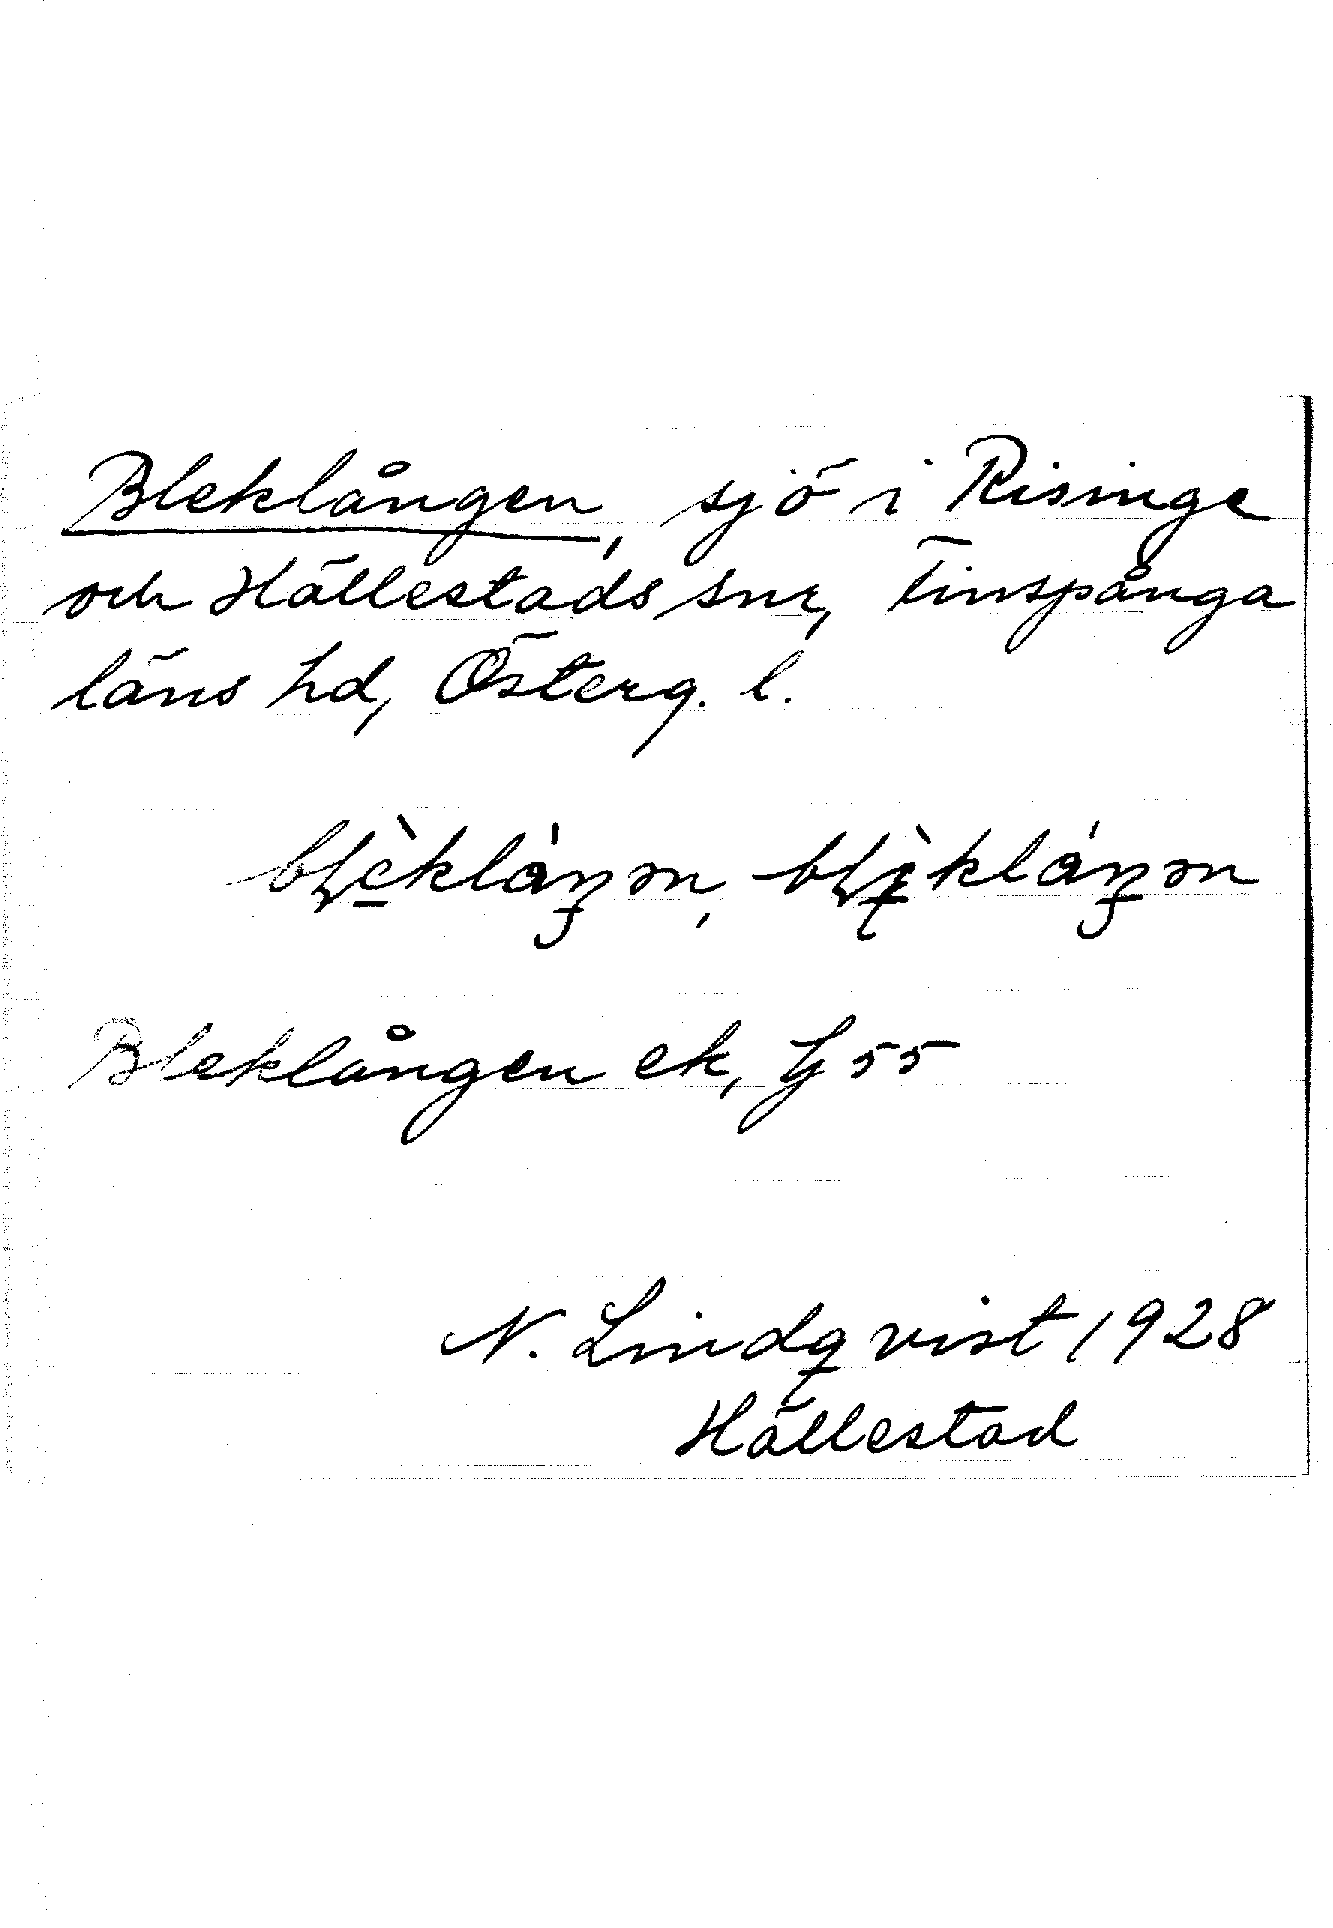 Bleklången, sjö i Risinge
och Hällestads snr, Finspånga
läns hd, Österg. l.
Bleklången ek, G 55
N. Lindqvist 1928
Hällestad